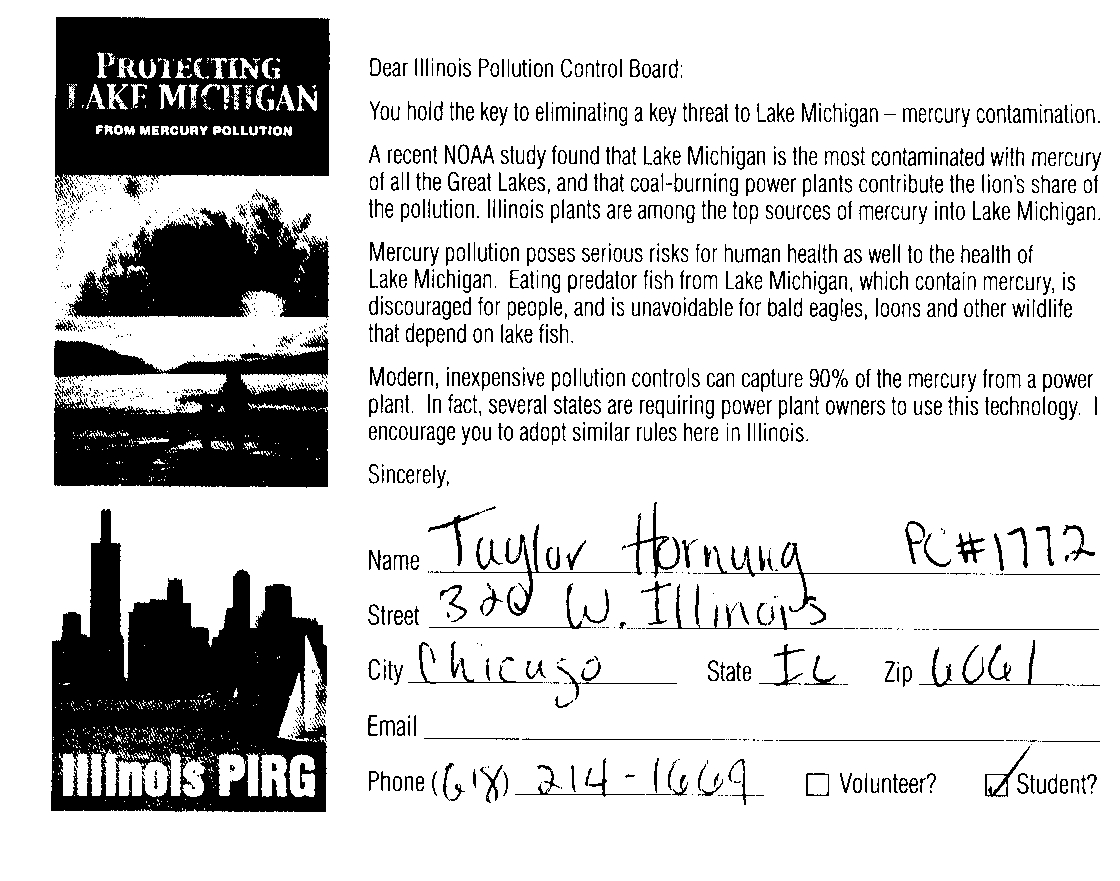 PROTECTING
LAKE MICHIGAN
FROM MERCURY POLLUTION
Illinois PIRG
Dear Illinois Pollution Control Board:
You hold the key to eliminating a key threat to Lake Michigan – mercury contamination.
A recent NOAA study found that Lake Michigan is the most contaminated with mercury
of all the Great Lakes, and that coal-burning power plants contribute the lion's share of
the pollution. Illinois plants are among the top sources of mercury into Lake Michigan.
Mercury pollution poses serious risks for human health as well to the health of
Lake Michigan. Eating predator fish from Lake Michigan, which contain mercury, is
discouraged for people, and is unavoidable for bald eagles, loons and other wildlife
that depend on lake fish.
Modern, inexpensive pollution controls can capture 90% of the mercury from a power
plant. In fact, several states are requiring power plant owners to use this technology. I
encourage you to adopt similar rules here in Illinois.
Sincerely,
Name Taylor Hornung PC#1772
Street 320 W. Illinois
City Chicago State IL Zip 6061
Email
Phone (618) 214-1669 Volunteer? Student?